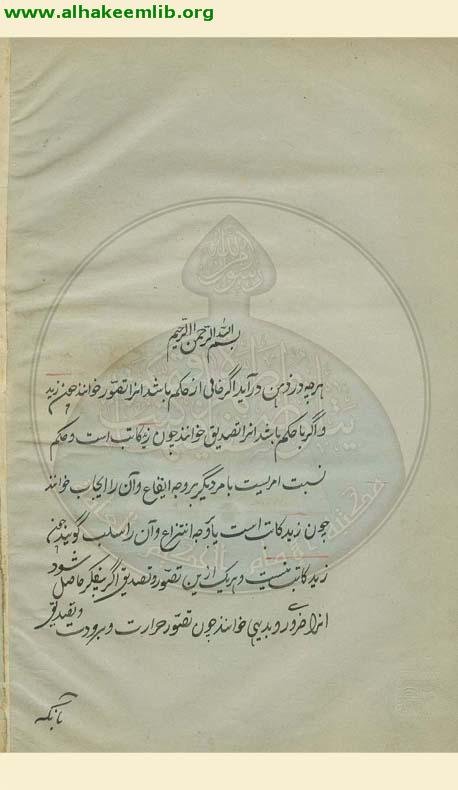 www.alhakeemlib.org
بسم الله الرحمن الرحيم
هرچه در ذهن درآید اگر خالی از حکم باشد انرا تصوّر خوانند چون زید
و اگر با حکم باشد انرا تصدیق خوانند چون زید کاتب است و حکم
نسبت امریست بامر دیگر بر وجه ایقاع و آن را ایجاب خوانند
چون زید کاتب است یا بر وجه انتزاع و آن را سلب گویند چون
زید کاتب نیست و هریک ازین تصوّر و تصدیق اگر بیفکر حاصل شود
انرا ضروری و بدیهی خوانند چون تصوّر حرارت و برودت و تصدیق
بآنکه